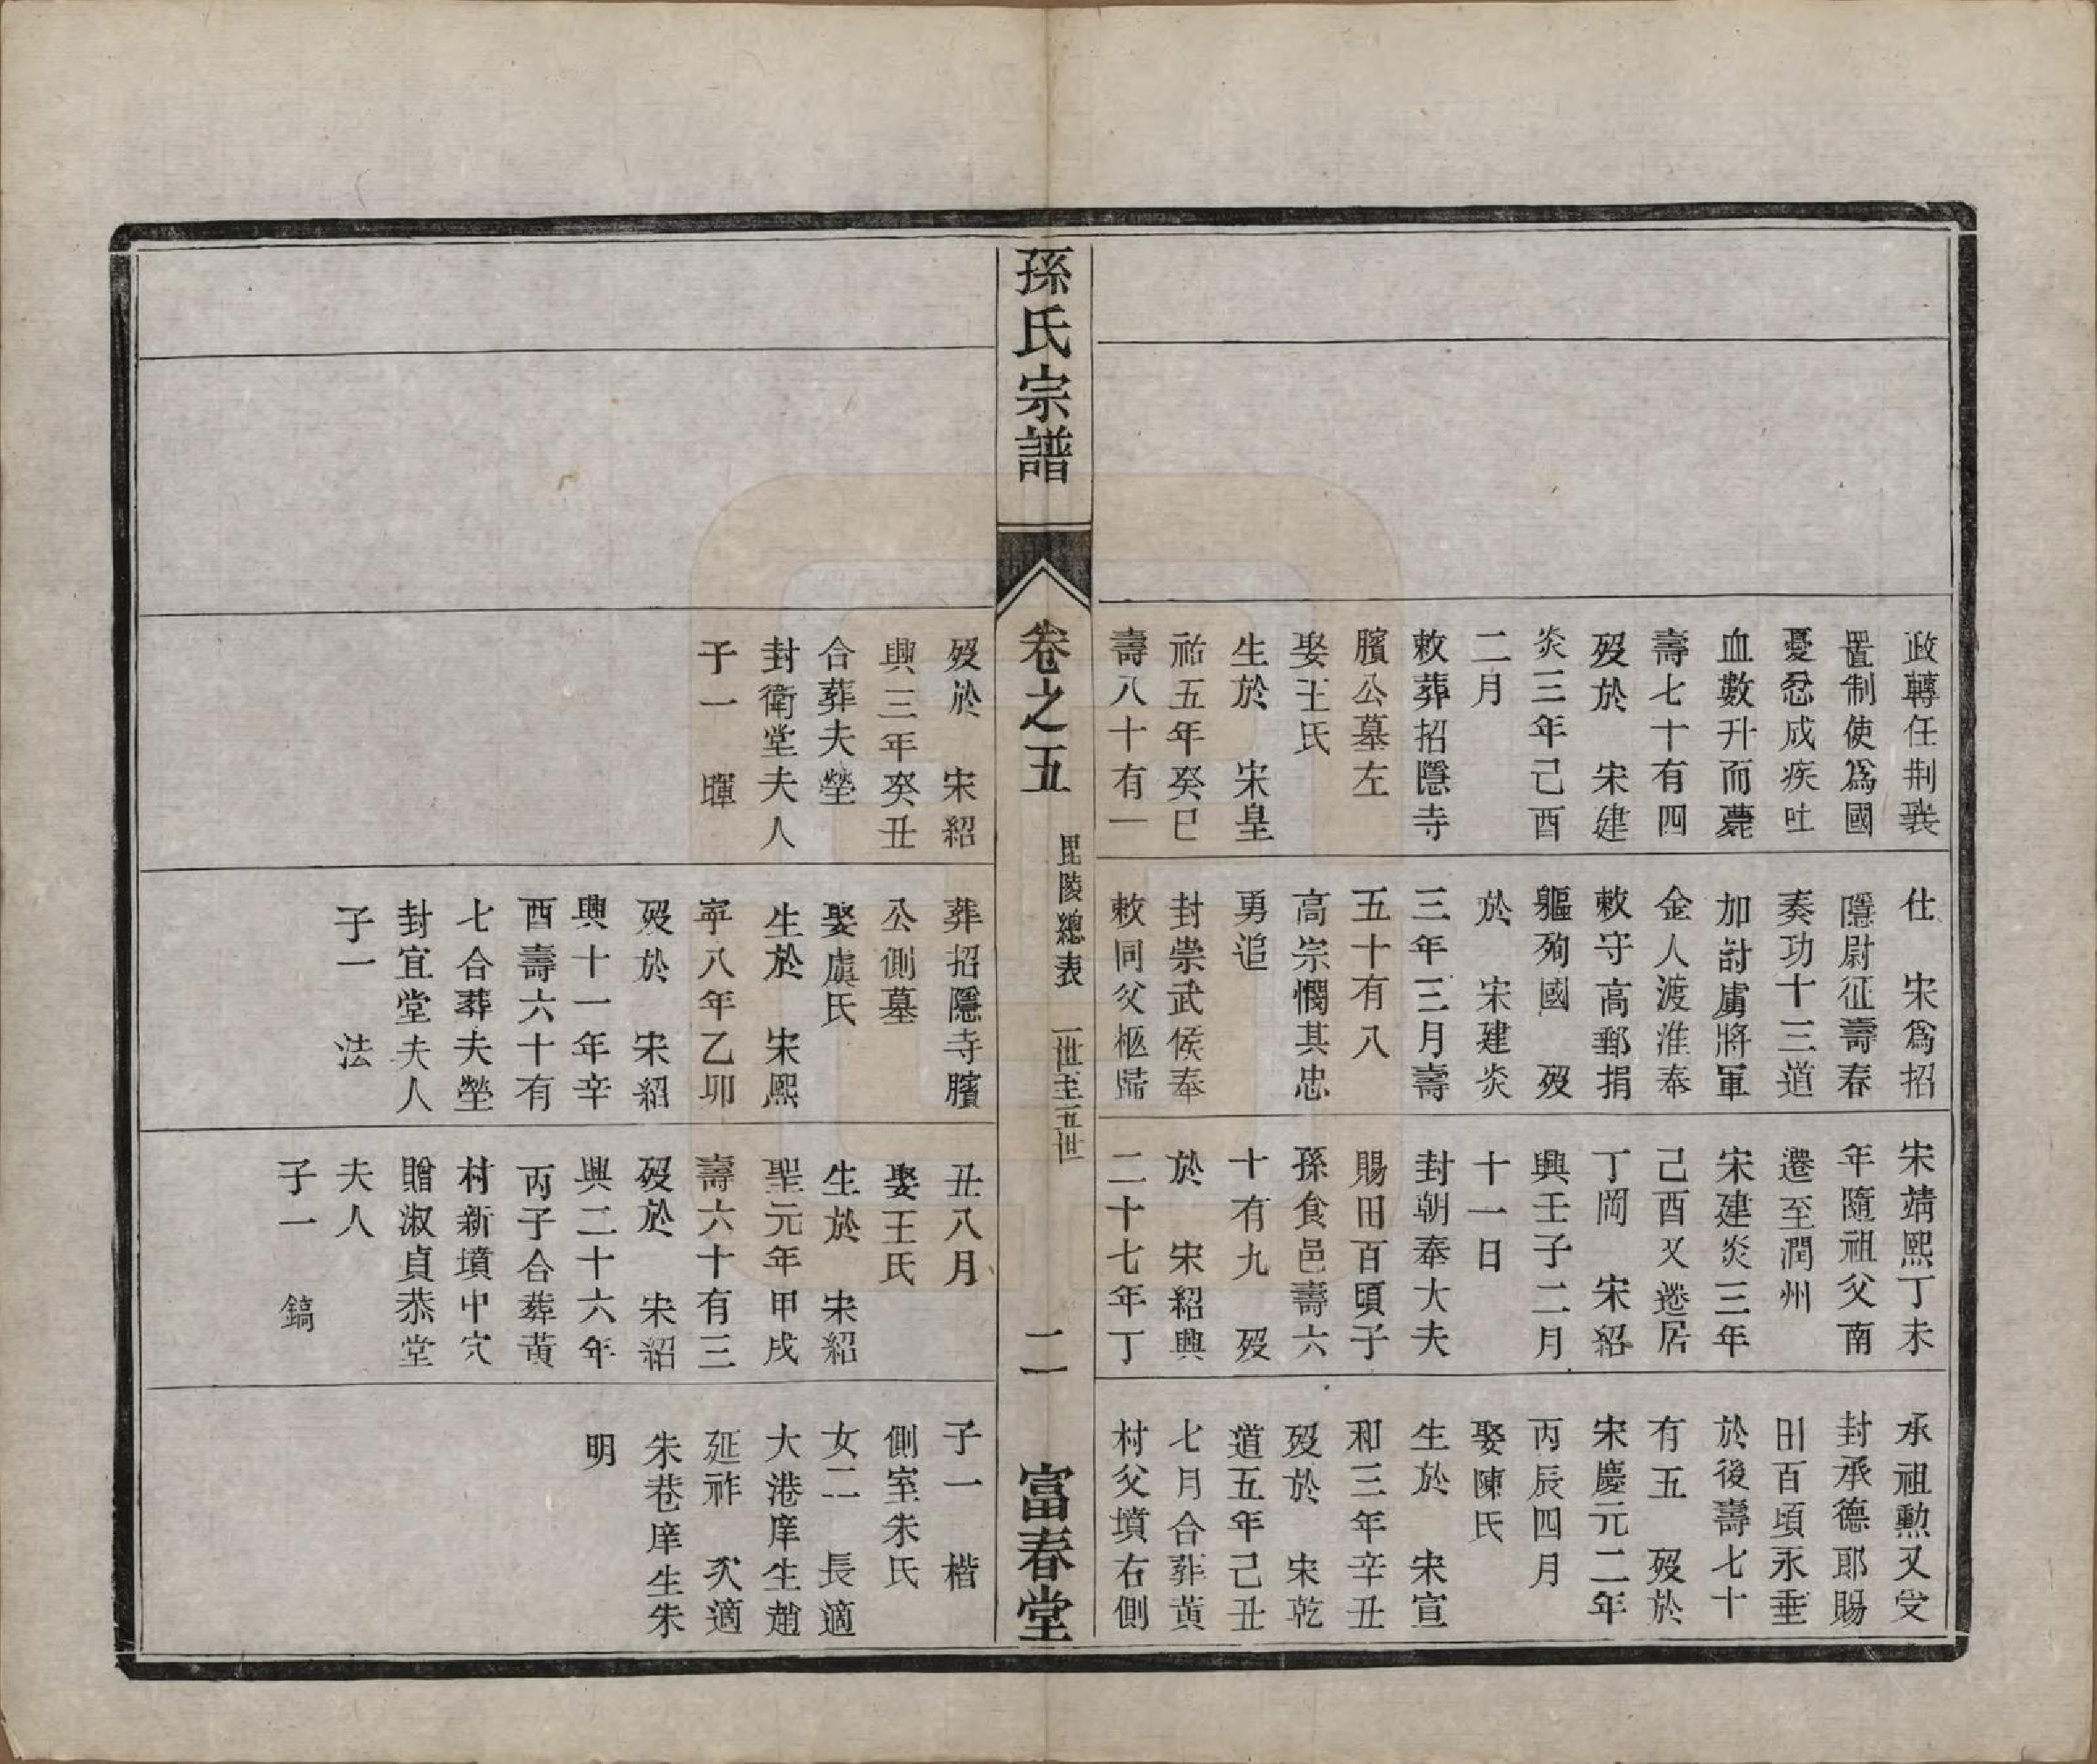 政轉任荆襄
置制使爲國
憂忿成疾吐
血數升而薨
壽七十有四
歿於　宋建
炎三年己酉
二月
敕葬招隱寺
臏公墓左
娶王氏
生於　宋皇
祐五年癸巳
壽八十有一
仕　宋爲招
隱尉征壽春
奏功十三道
加討虜將軍
金人渡淮奉
敕守高郵捐
軀殉國　歿
於　宋建炎
三年三月壽
五十有八
高宗憫其忠
勇追
封崇武侯奉
敕同父柩歸
宋靖熙丁未
年隨祖父南
遷至潤州
宋建炎三年
己酉又遷居
丁岡　宋紹
興壬子二月
十一日
封朝奉大夫
賜田百頃子
孫食邑壽六
十有九　歿
於　宋紹興
二十七年丁
承祖勳又受
封承德郎賜
田百頃永垂
於後壽七十
有五　歿於
宋慶元二年
丙辰四月
娶陳氏
生於　宋宣
和三年辛丑
歿於　宋乾
道五年己丑
七月合葬黃
村父墳右側
孫氏宗譜
卷之五
毘陵總表　一世至五世
二
富春堂
歿於　宋紹
興三年癸丑
合葬夫塋
封衛堂夫人
子一　暉
葬招隱寺臏
公側墓
娶虞氏
生於　宋熙
寧八年乙卯
歿於　宋紹
興十一年辛
酉壽六十有
七合葬夫塋
封宜堂夫人
子一　法
丑八月
娶王氏
生於　宋紹
聖元年甲戌
壽六十有三
歿於　宋紹
興二十六年
丙子合葬黃
村新墳中穴
贈淑貞恭堂
夫人
子一　鎬
子一　楷
側室朱氏
女二　長適
大港庠生趙
延祚　次適
朱巷庠生朱
明